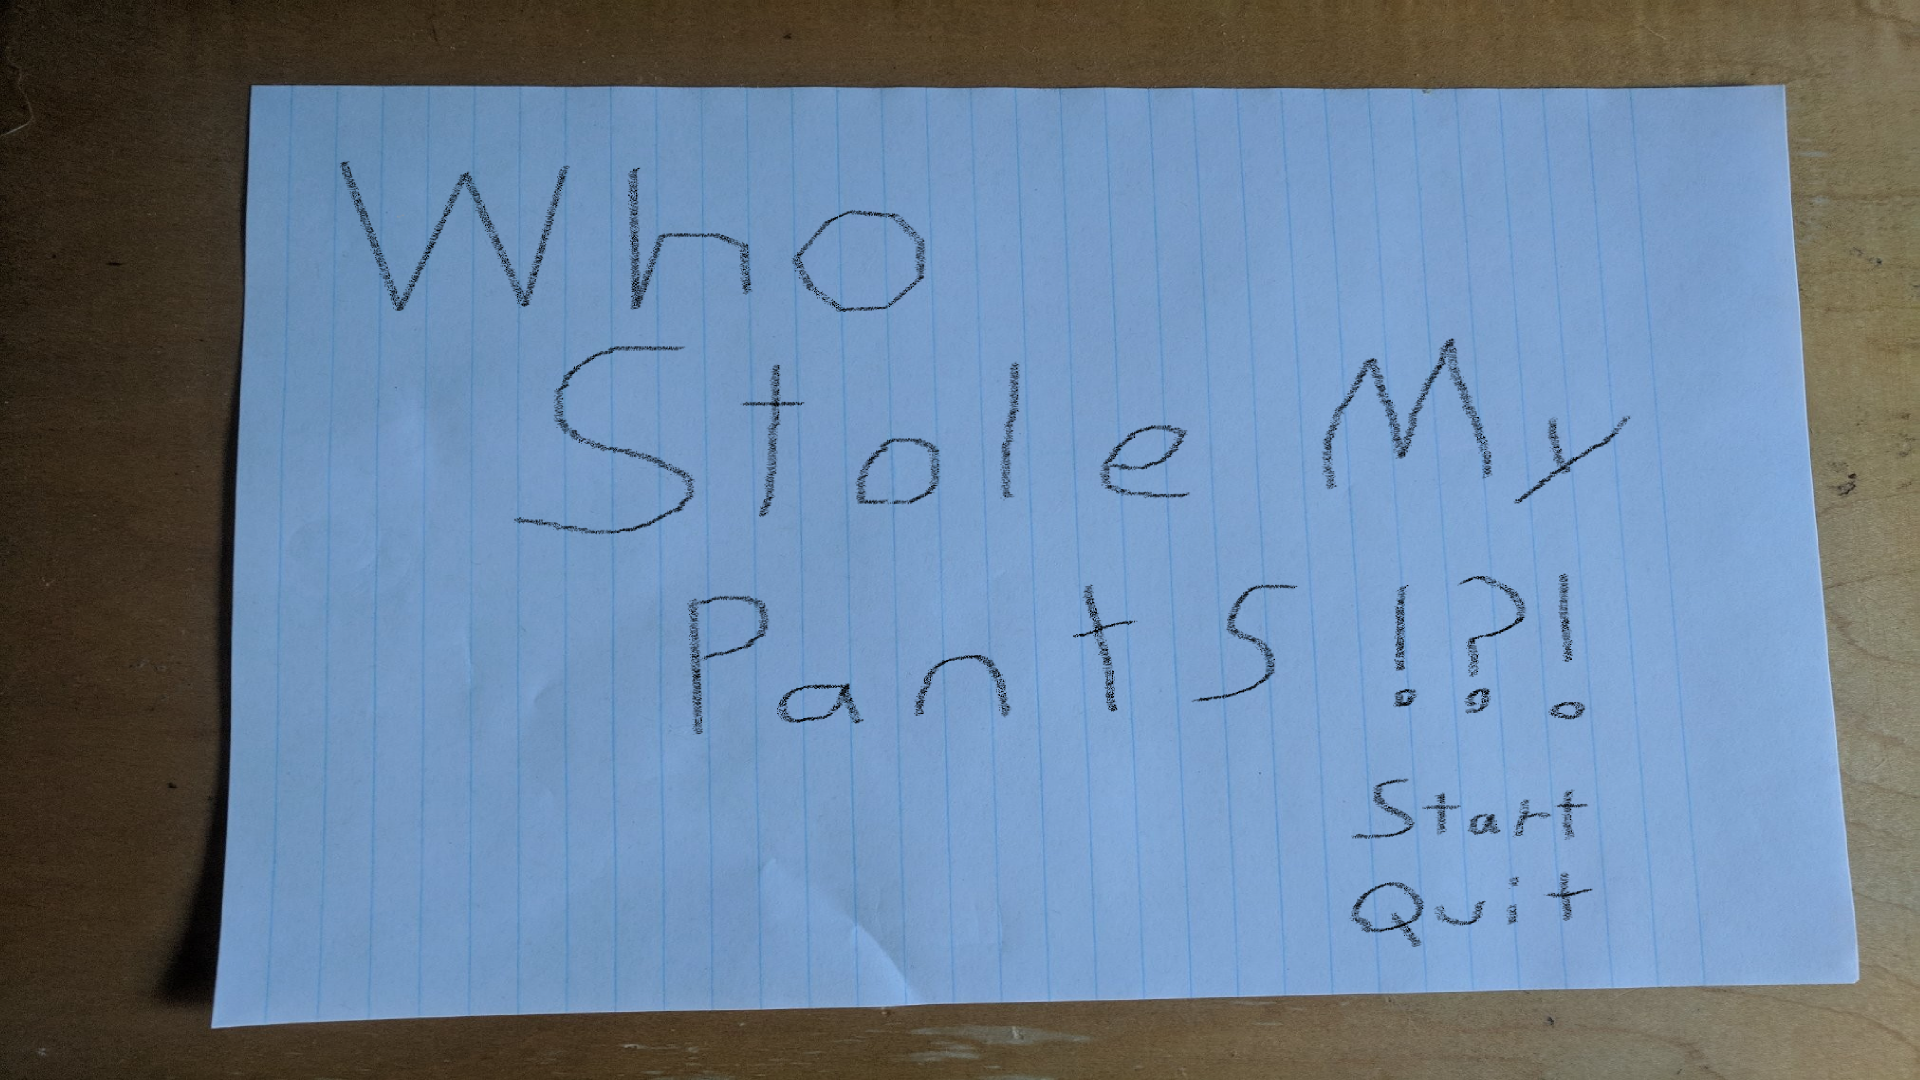 Who
Stole My
Pants!?!
Start
Quit